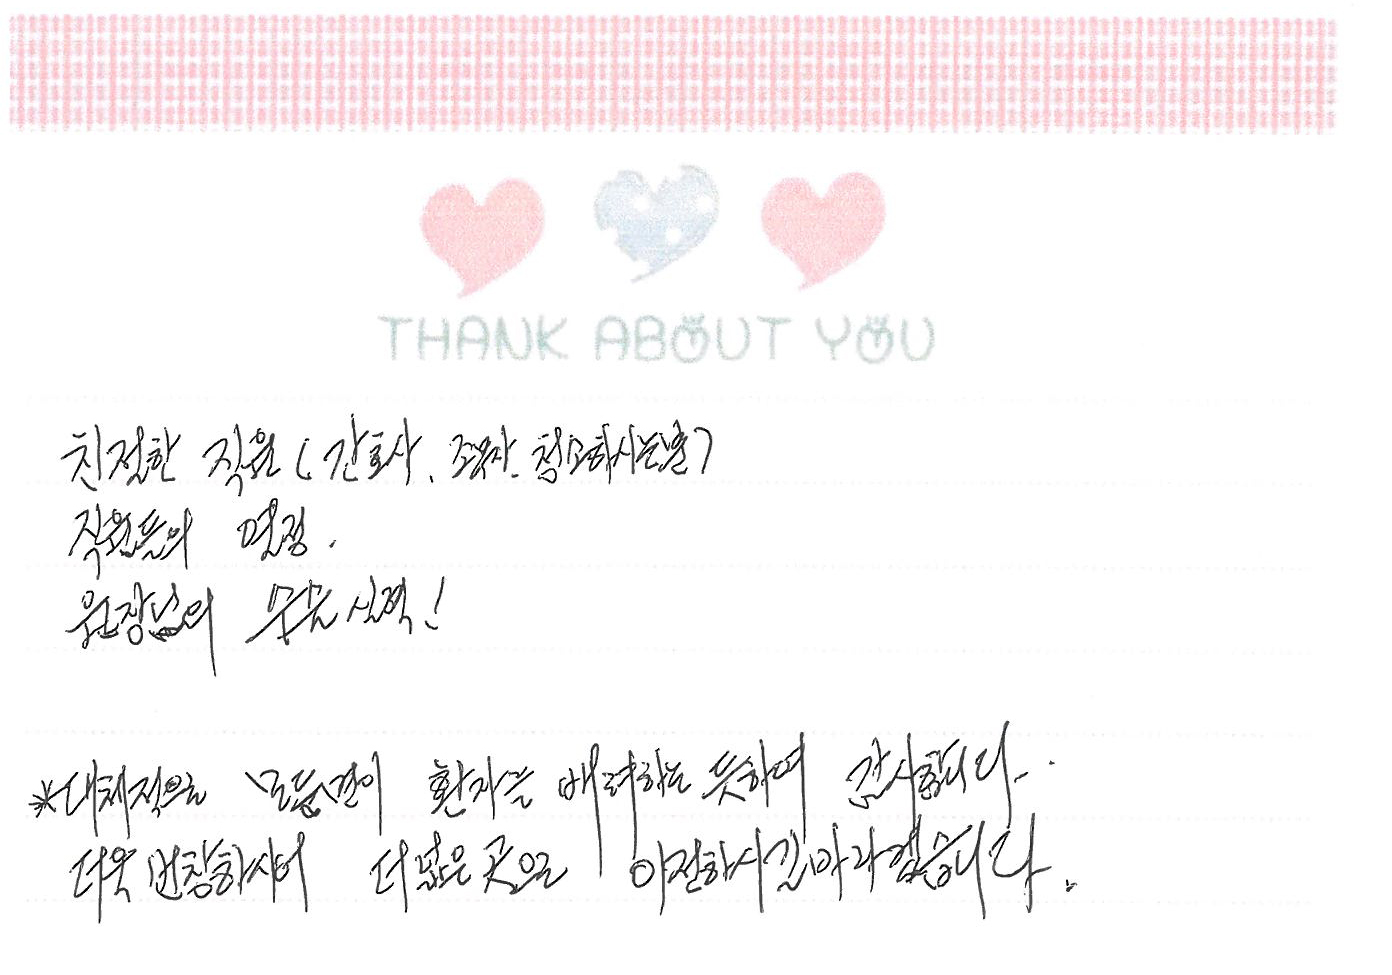 THANK ABOUT YOU
친절한 직원 (간호사, 조무사, 청소하시는분)
직원들의 열정.
원장님의 수술실력!
*대체적으로 모든면이 환자를 배려하는 듯하며 감사합니다..
더욱 번창하시어 더 넓은 곳으로 이전하시길 바라겠습니다.